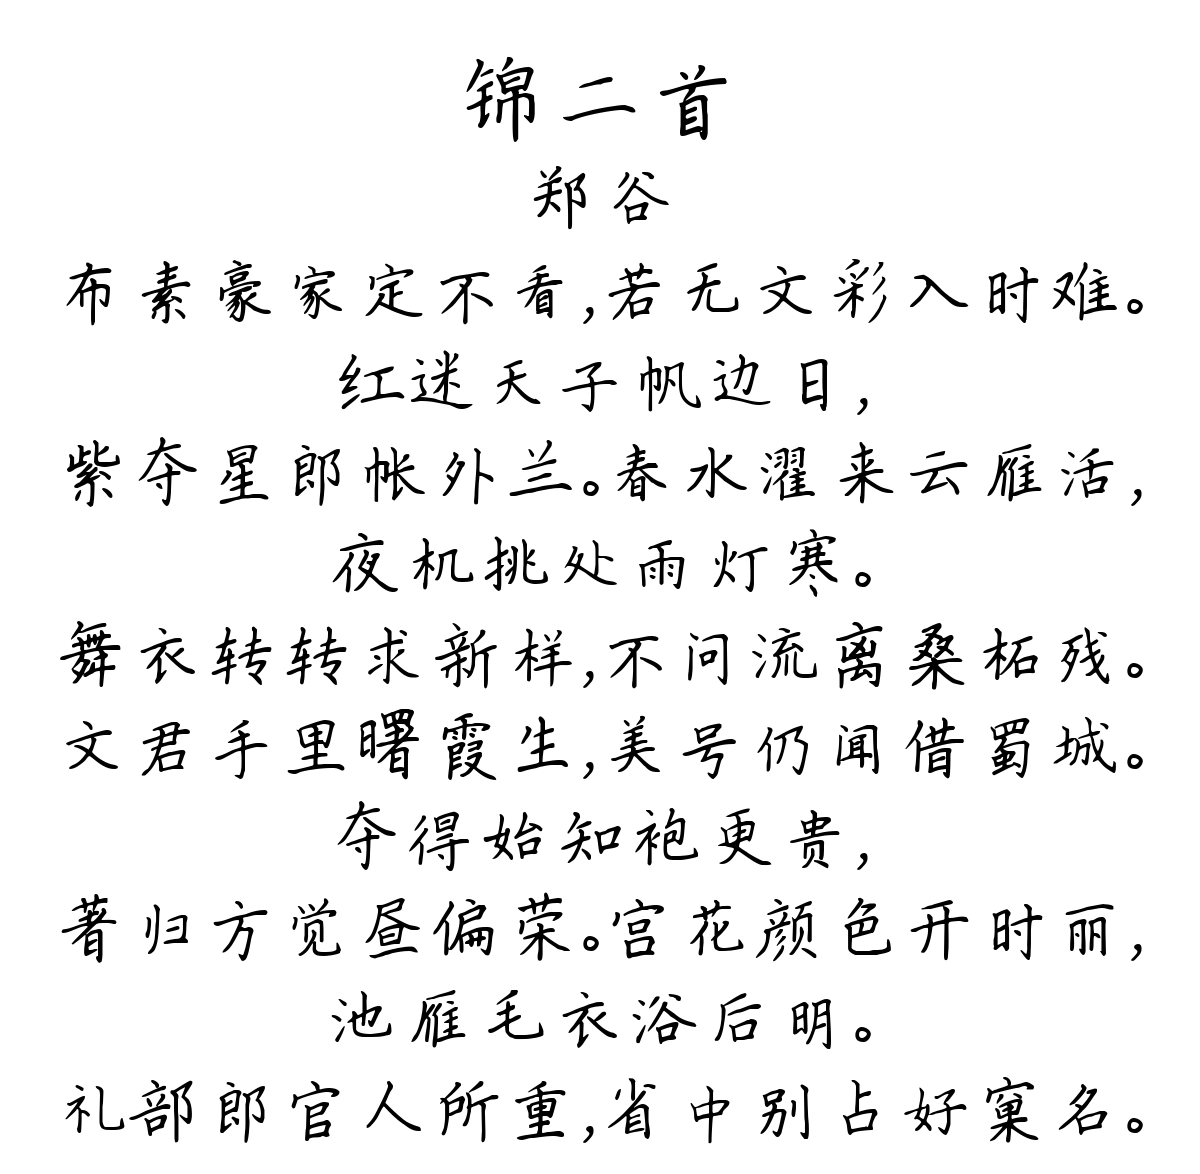 锦二首
郑谷
布素豪家定不看,若无文彩入时难。
红迷天子帆边日,
紫夺星郎帐外兰。春水濯来云雁活,
夜机挑处雨灯寒。
舞衣转转求新样,不问流离桑柘残。
文君手里曙霞生,美号仍闻借蜀城。
夺得始知袍更贵,
著归方觉昼偏荣。宫花颜色开时丽,
池雁毛衣浴后明。
礼部郎官人所重,省中别占好窠名。